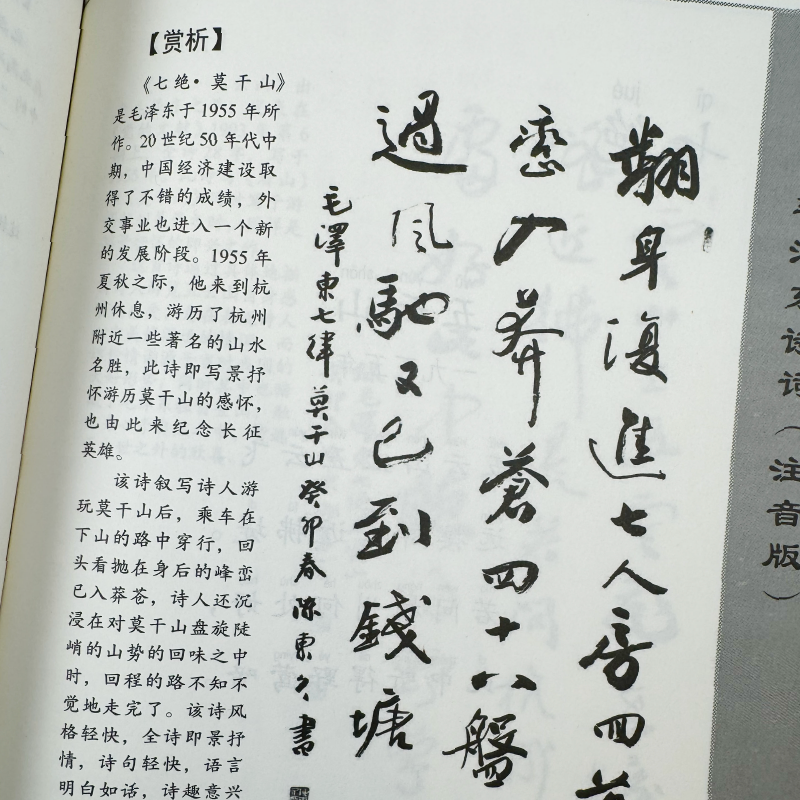 【赏析】
《七绝·莫干山》
是毛泽东于1955年所
作。20世纪50年代中
期，中国经济建设取
得了不错的成绩，外
交事业也进入一个新
的发展阶段。1955年
夏秋之际，他来到杭
州休息，游历了杭州
附近一些著名的山水
名胜，此诗即写景抒
怀游历莫干山的感怀，
也由此来纪念长征
英雄。
该诗叙写诗人游
玩莫干山后，乘车在
下山的路中穿行，回
头看抛在身后的峰峦
已入莽苍，诗人还沉
浸在对莫干山盘旋陡
峭的山势的回味之中
时，回程的路不知不
觉地走完了。该诗风
格轻快，全诗即景抒
情，诗句轻快，语言
明白如话，诗趣意兴
翻身復進七人房回首
峦入莽蒼四十八盤
過風馳又已到錢塘
毛澤東七律莫干山癸卯春陈東久書
诗词（注音版）